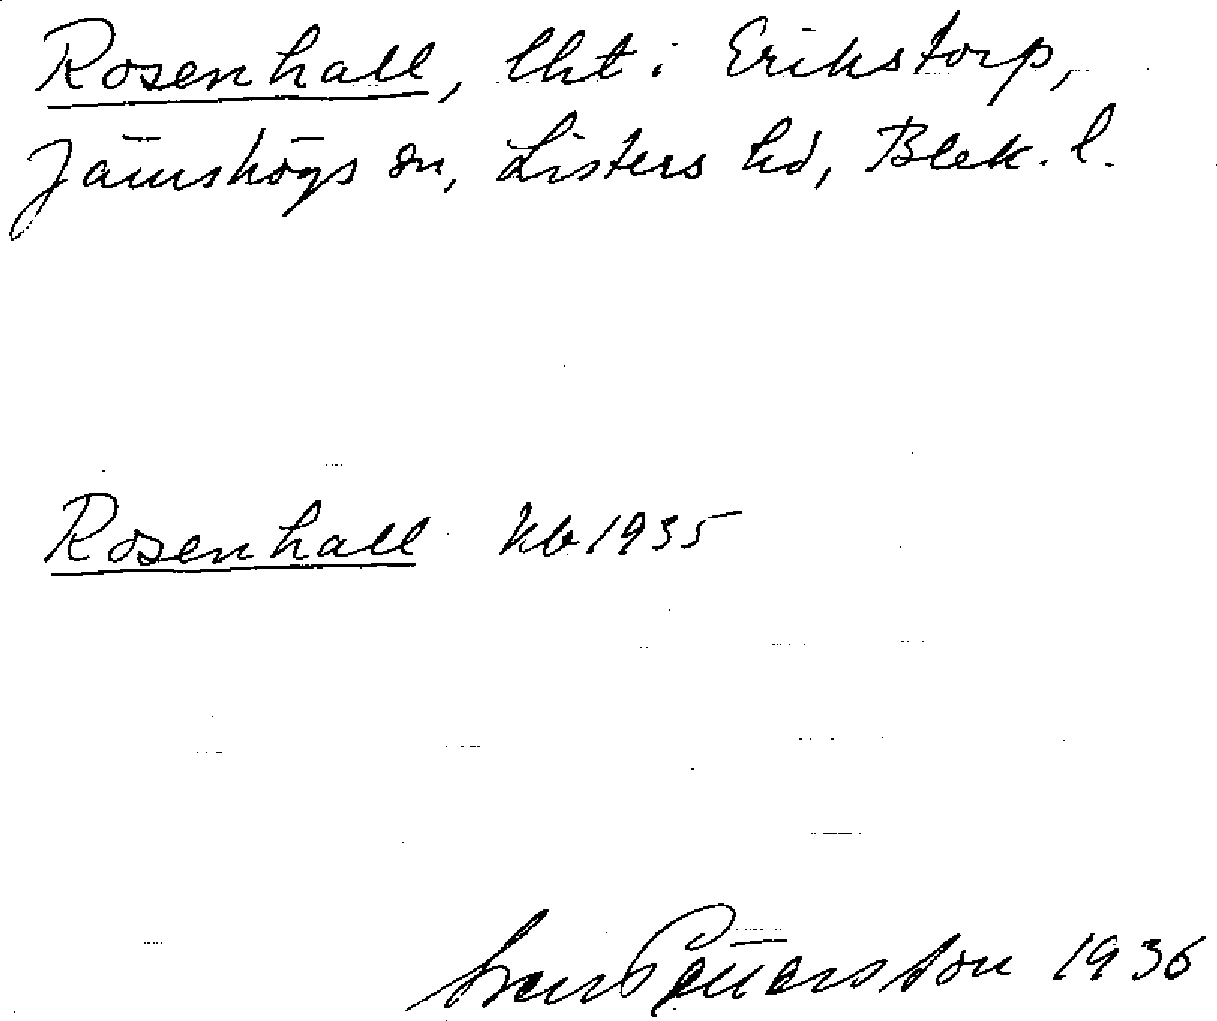 Rosenhall, lht i Erikstorp,
Jämshögs sn, Listers hd, Blek. l.
Rosenhall kb 1935
1936